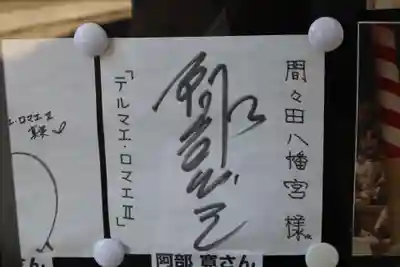 間々田八幡宮 様
「テルマエ・ロマエⅡ」
阿部 寛さん
エ・ロマエⅡ
さん